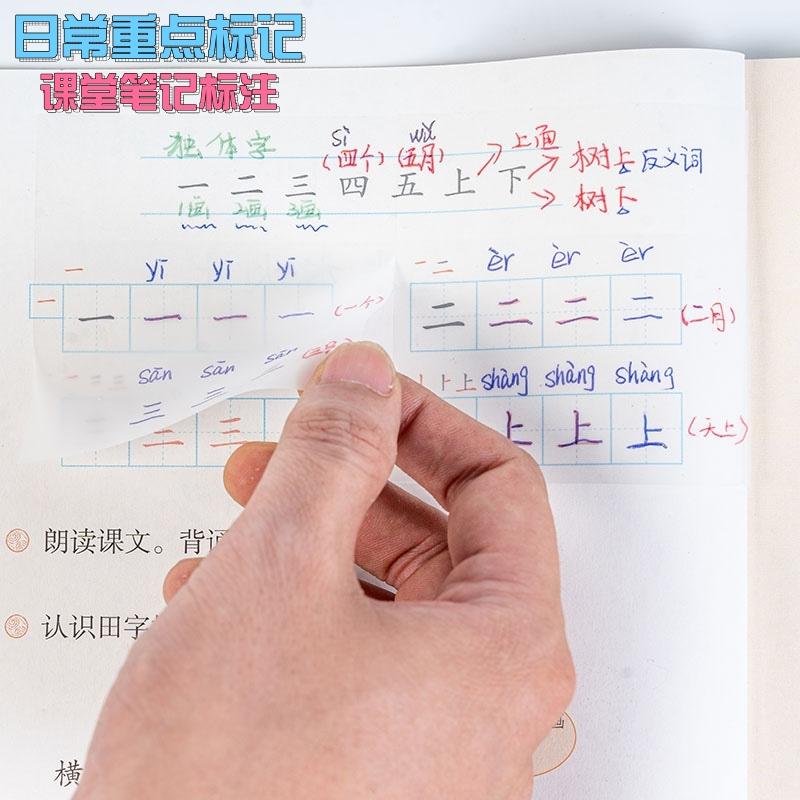 日常重点标记
课堂笔记标注
独体字 sì wǔ 上面
(四个) (五月) 树上 反义词
一 二 三 四 五 上 下
1画 2画 3画 树下
一 yī yī yī 一 二 èr èr èr
一 一 一 一 一 (一个) 二 二 二 二 (二月)
sān sān sān 上 shàng shàng shàng
三 二 三 上 上 上 (天上)
朗读课文。背诵
认识田字
横